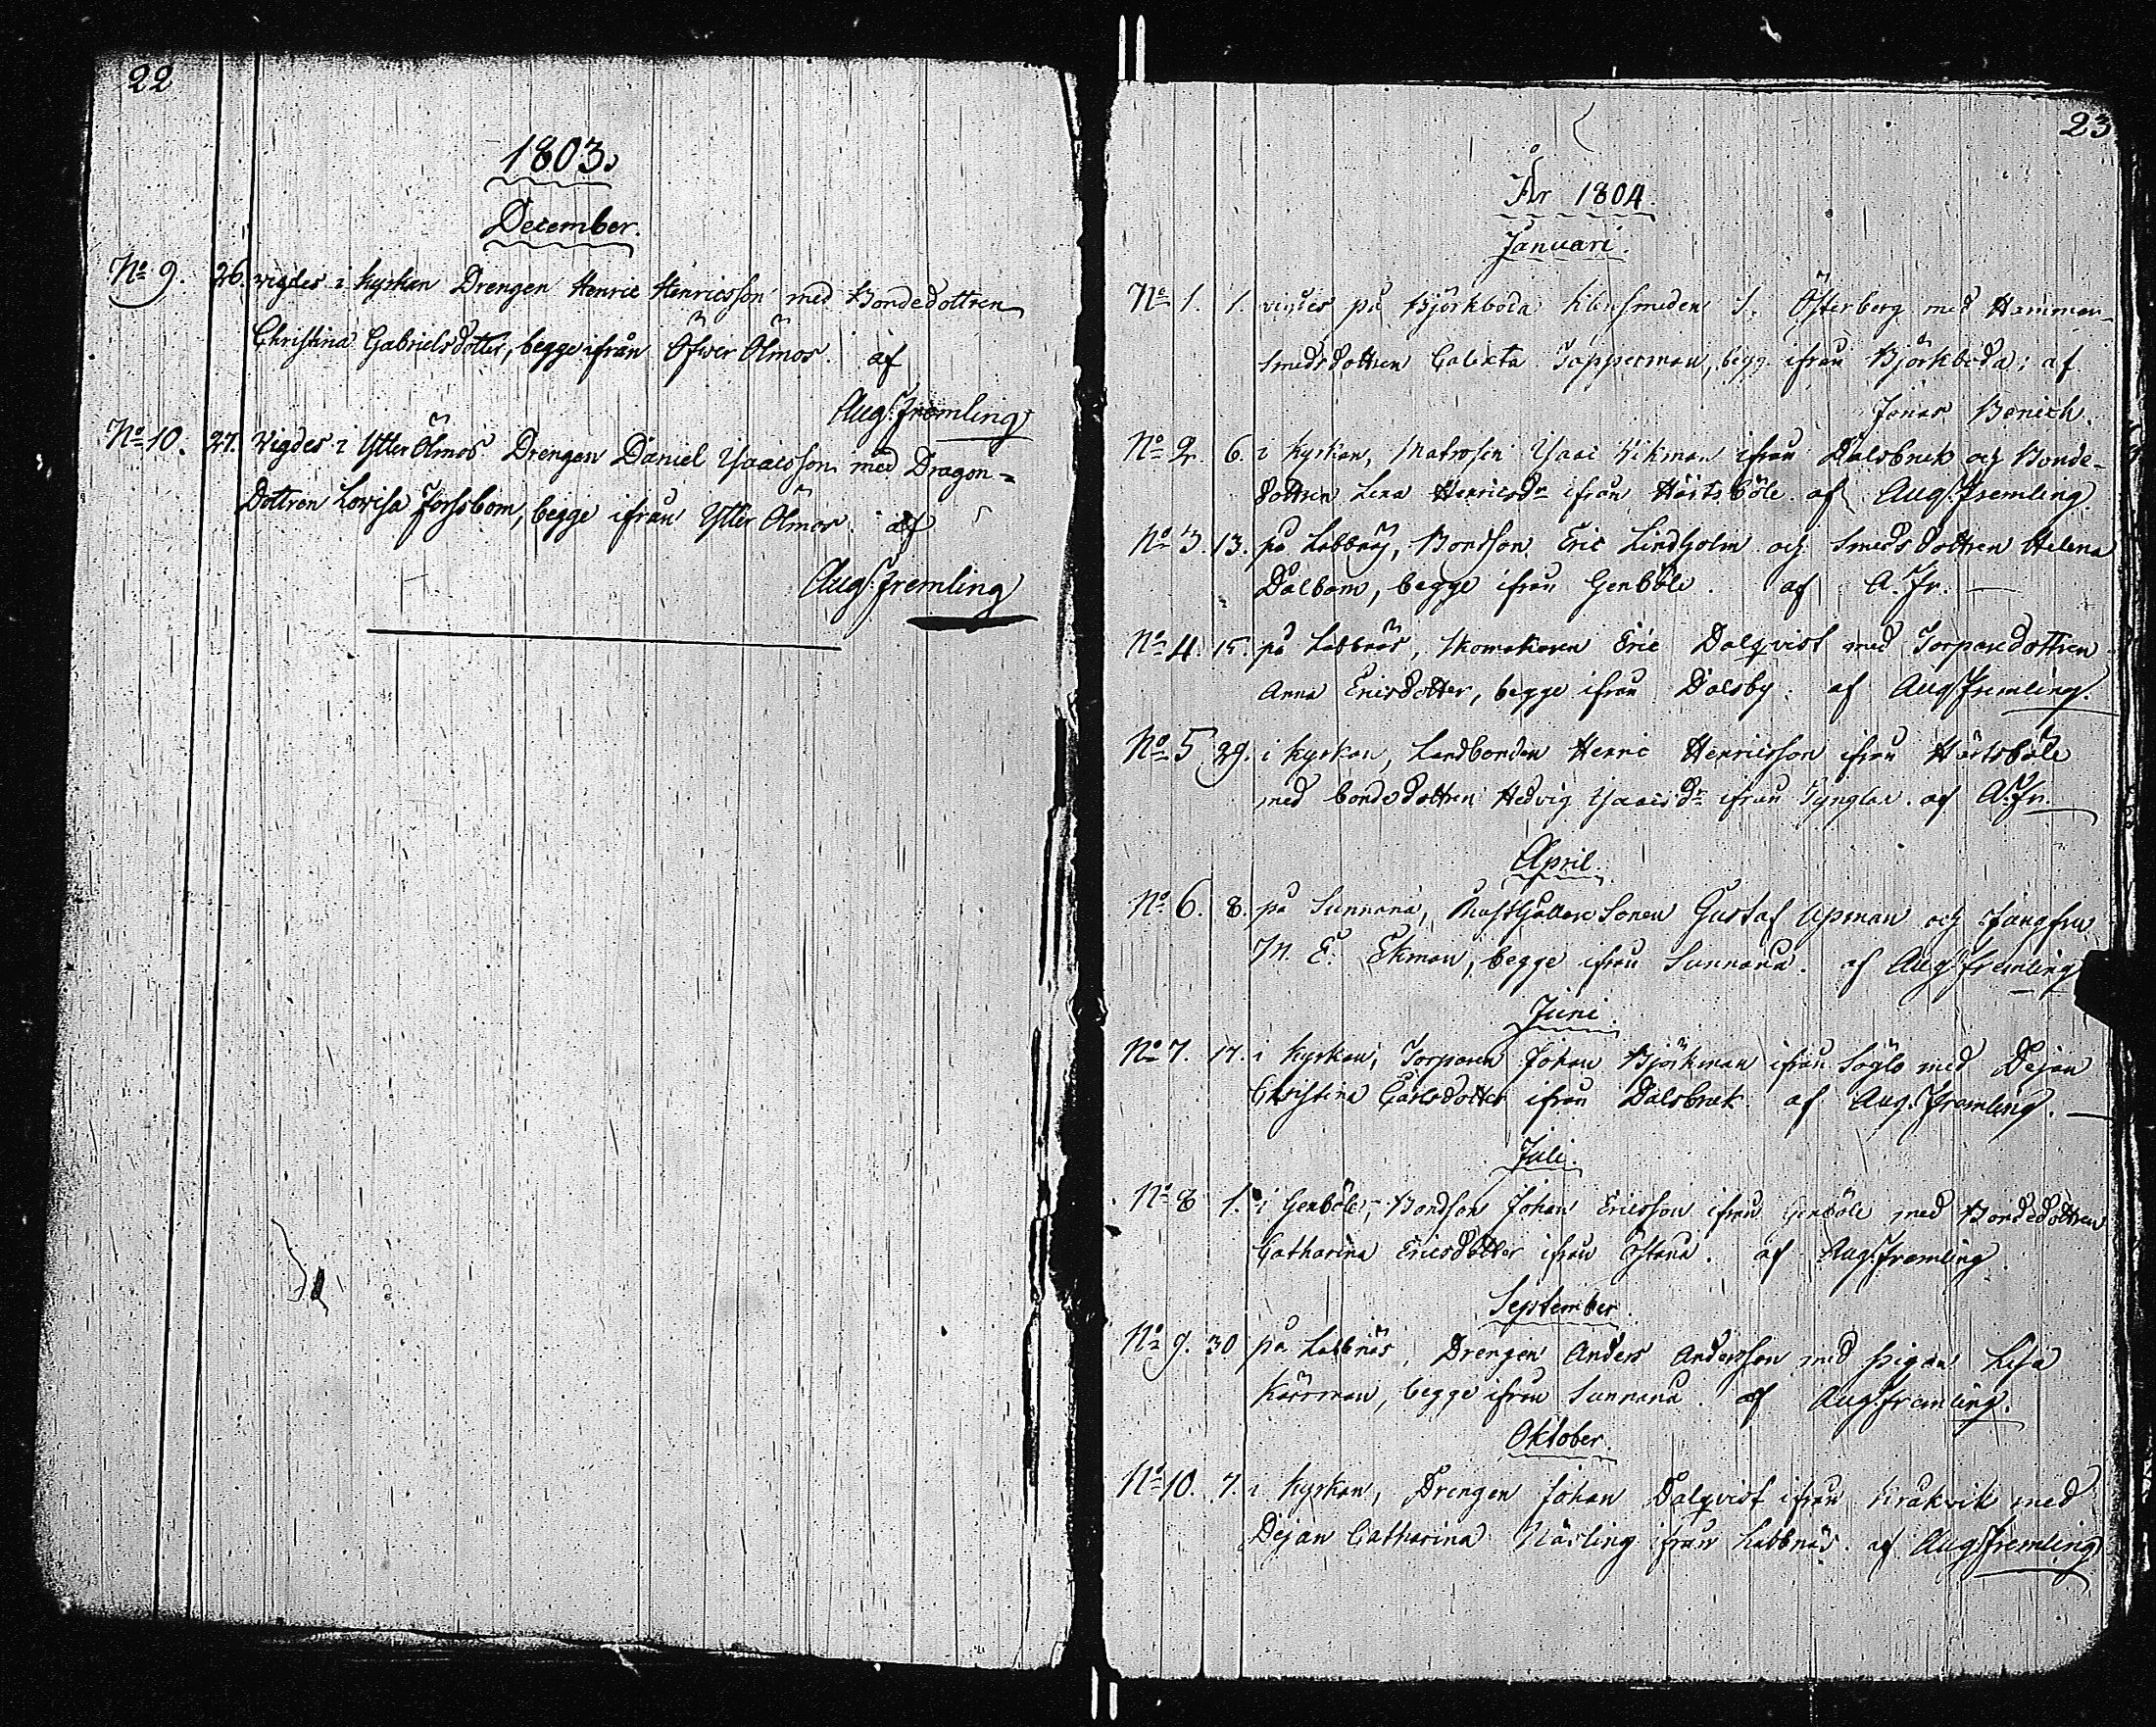 22
1803.
December.
No 9. 26. vigdes i Kyrkan Drengen Henric Henricsson med Bondedottren
Christina Gabrielsdotter, begge ifrån Öfwer Ölmos. af
Aug: Fremling
No 10. 27. Vigdes i Ytter Ölmos Drengen Daniel Isaacsson med Dragon-
Dottren Lovisa Forssbom, begge ifrån Ytter Ölmos. af
Aug: Fremling
23
År 1804.
Januari.
No 1. 1. vigdes på Björkboda Klensmeden J. Österberg med Hammar-
smedsdottren Calixta Tapperman, begg. ifrån Björkboda; af
Jonas Bonich.
No 2. 6. i Kyrkan, Matrosen Isaac Vikman ifrån Dalsbruk och Bonde-
dottren Lena Henricsdr ifrån Hertsböle af Aug: Fremling.
No 3. 13. på Labbnäs, Bondson Eric Lindholm och Smedsdottren Helena
Dalbom, begge ifrån Genböle. af A. Fr.
No 4. 15. på Labbnäs, Skomakaren Eric Dalqvist med Torparedottren
Anna Ericsdotter, begge ifrån Dalsby. af Aug: Fremling.
No 5 29. i Kyrkan, Landbonden Henric Henricsson ifrån Hertsböle
med bondedottren Hedvig Isaacsdr ifrån Tynglax. af A. Fr.
April.
No 6. 8. på Sunnanå, Gustaf Apman och Jungfru
M. E. Ekman, begge ifrån Sunnanå. af Aug: Fremling
Juni.
No 7. 17. i Kyrkan, Torparen Johan Björkman ifrån Söglö med Dejan
Christina Carlsdotter ifrån Dalsbruk af Aug: Fremling.
Juli.
No 8 1. i Genböle, Bondson Johan Ericsson ifrån Genböle med Bondedottren
Catharina Ericsdotter ifrån Östanå. af Aug: Fremling
September.
No 9. 30 på Labbnäs, Drengen Anders Andersson med pigan Lisa
Kärrman, begge ifrån Sunnanå. af Aug: Fremling.
Oktober.
No 10. 7. i Kyrkan, Drengen Johan Dalqvist ifrån Kråkvik med
Dejan Catharina Närling ifrån Labbnäs. af Aug: Fremling